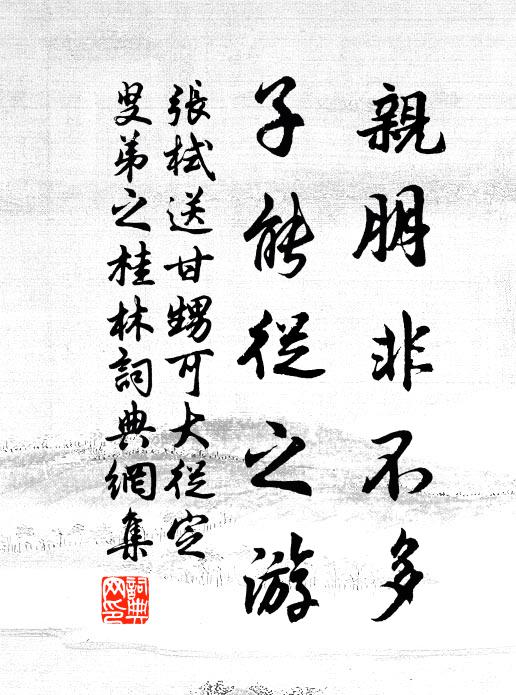 親朋非不多
子能從之游
張栻送甘甥可大從定
叟弟之桂林詞典網集
詞典網印